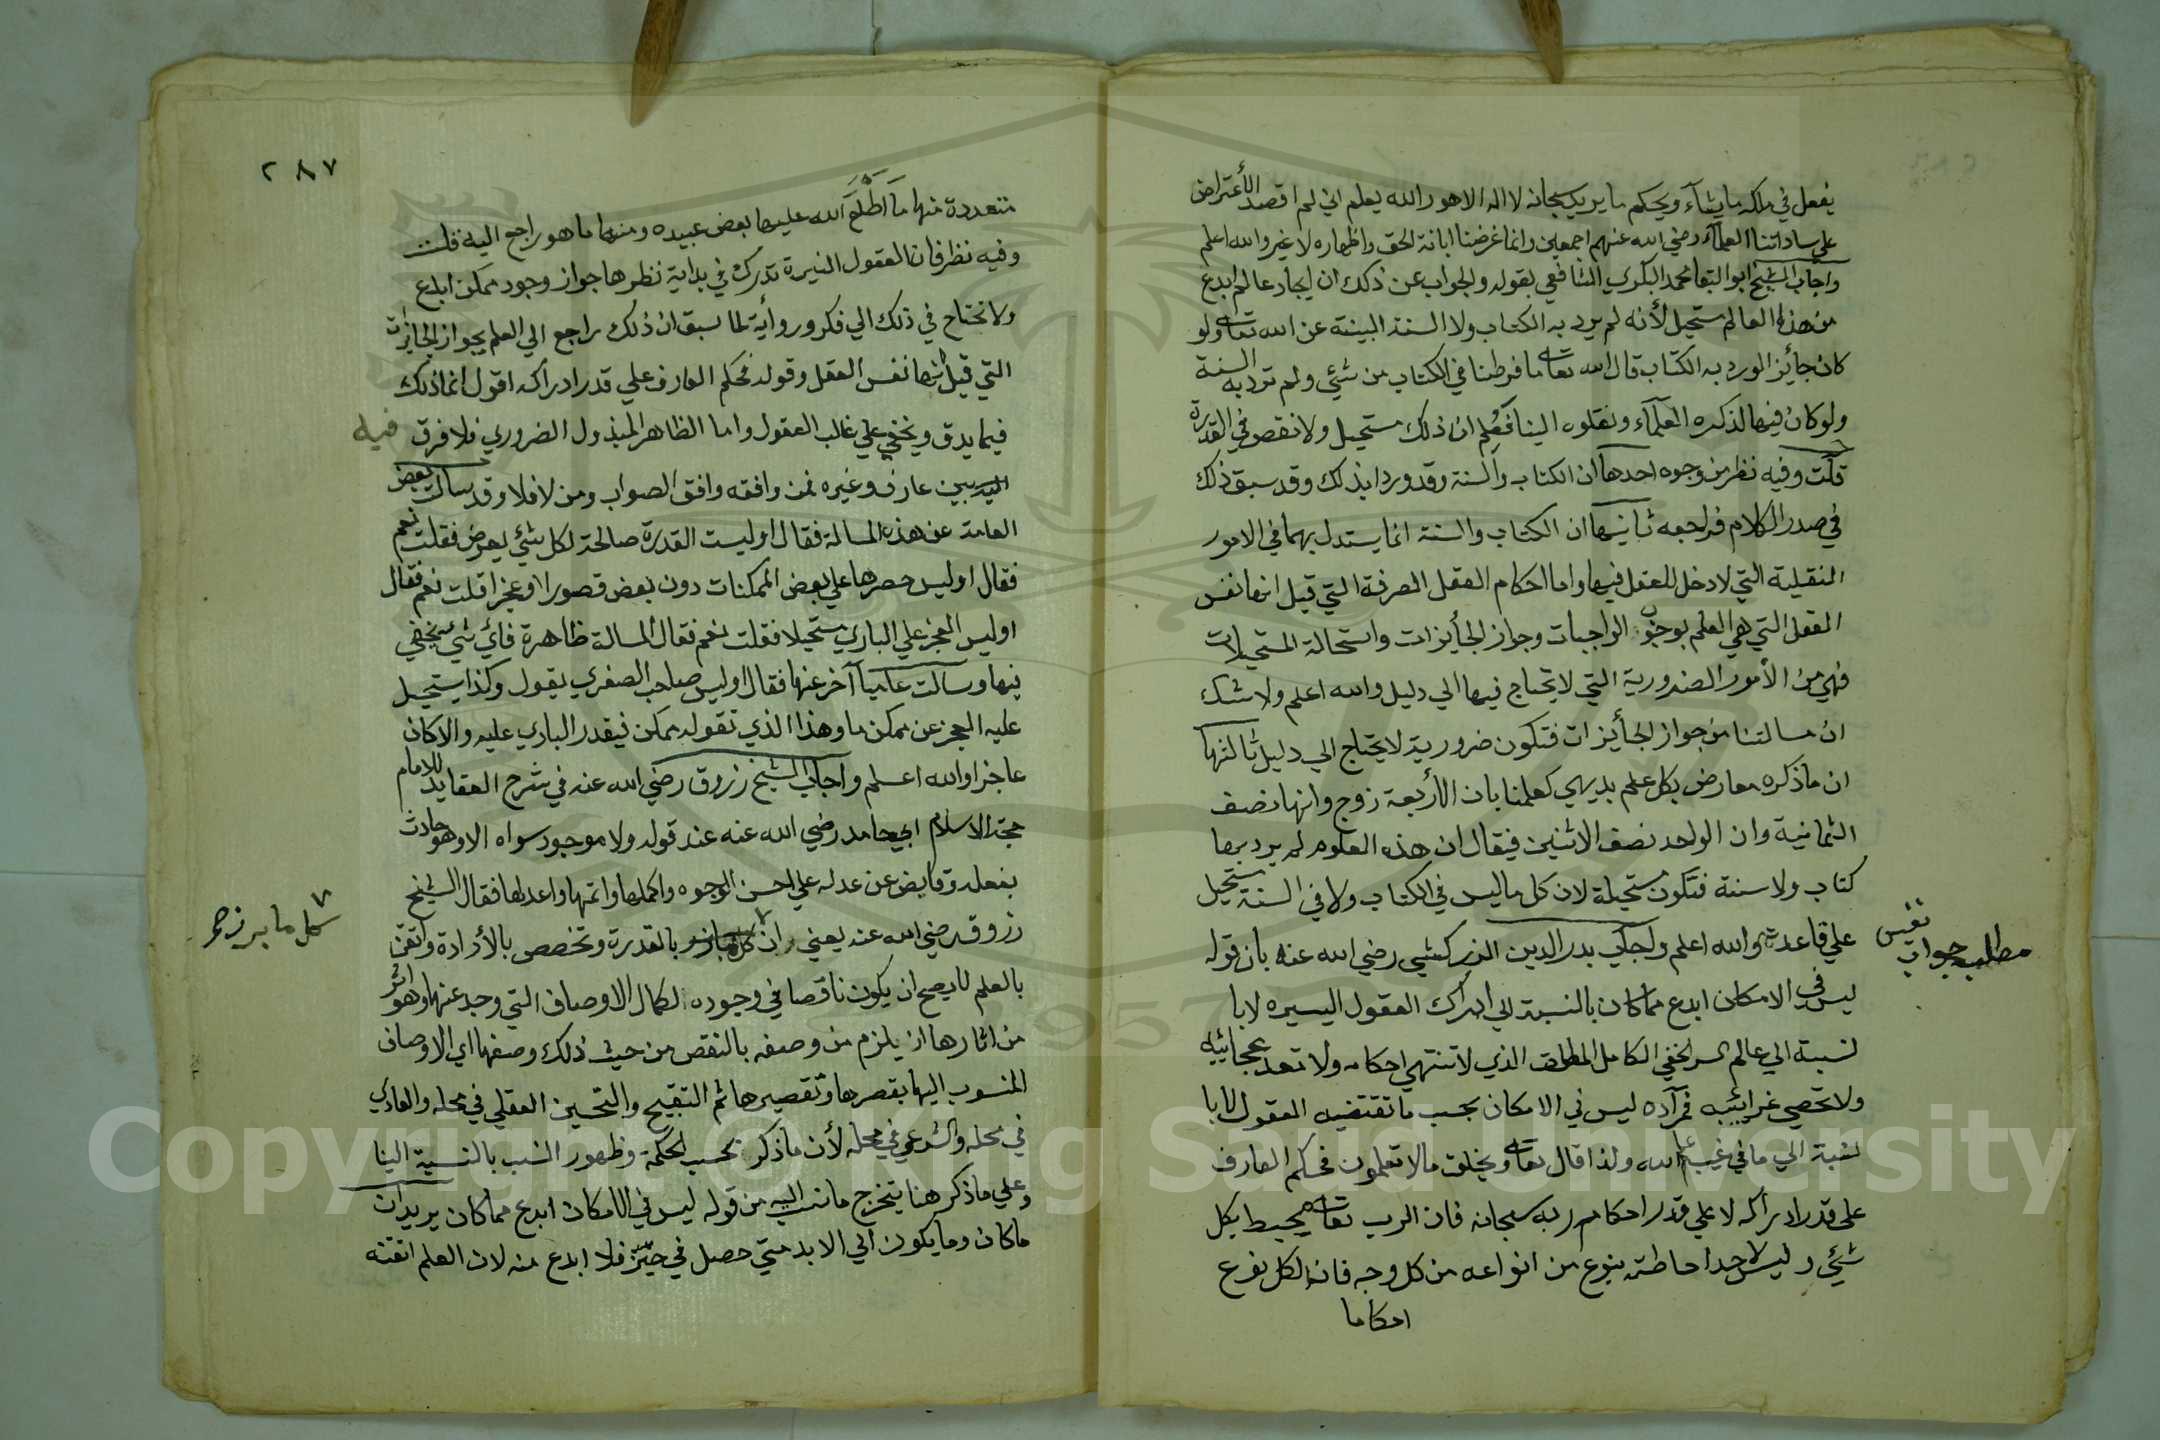 يفعل في ملكه ما يشآء ويحكم ما يريد سبحانه لا اله الا هو والله يعلم اني لم اقصد الأعتراض
علي ساداتنا العلمآء رضي الله عنهم اجمعين وانما غرضنا ابانة الحق واظهاره لا غير والله اعلم
واجاب الشيخ ابو البقا محمد البكري الشافعي بقوله والجواب عن ذلك ان ايجاد عالم ابدع
من هذا العالم مستحيل لأنه لم يرد به الكتاب ولا السنة المبينة عن الله تعالى ولو
كان جائز الورد به الكتاب قال الله تعالى ما فرطنا في الكتاب من شئ ولم ترد به السنة
ولو كان فيها لذكره العلمآء ونقلوه الينا فعُلم ان ذلك مستحيل ولا نقص في القدرة
قلت وفيه نظر من وجوه احدها ان الكتاب والسنة وقد وردا بذلك وقد سبق ذلك
في صدر الكلام فراجعه ثانيها ان الكتاب والسنة انما يستدل بهما في الامور
النقلية التي لا دخل للعقل فيها واما احكام العقل الصرفة التي قيل انها نفس
العقل التي هي العلم بوجوب الواجبات وجواز الجأيزات واستحالة المستحيلات
فهي من الأمور الضرورية التي لا يحتاج فيها الي دليل والله اعلم ولا شك
ان مسالتنا من جواز الجأيزات فتكون ضرورية لا يحتاج الي دليل ثالثها
ان ما ذكره معارض بكل علم بديهي كعلمنا بان الأربعة زوج وانها نصف
الثمانية وان الواحد نصف الاثنين فيقال ان هذه العلوم لم يرد بها
كتاب ولا سنة فتكون مستحيلة لان كل ما ليس في الكتاب ولا في السنة مستحيل
علي قاعدته والله اعلم واجاب بدر الدين الزركشي رضي الله عنه بان قوله
ليس في الامكان ابدع مما كان بالنسبة الي ادراك العقول اليسيره لا با
لنسبة الي عالم السر الخفي الكامل المطلق الذي لا تنتهي احكامه ولا تعد عجائبه
ولا تحصي غرائبه فمرآده ليس في الامكان بحسب ما تقتضيه العقول لا با
لنسبة الي ما في غيب علم الله ولذا قال تعالى ويخلق ما لا تعلمون فحكم العارف
علي قدر ادراكه لا علي قدر احكام ربه سبحانه فان الرب تعالى محيط بكل
شئ وليس لاحد احاطة بنوع من انواعه من كل وجه فان لكل نوع
احكاما
مطلب جواب نفيس
٢٨٧
متعددة منها ما اطلع الله عليها بعض عبيده ومنها ما هو راجع اليه قلت
وفيه نظر فان العقول النيرة تدرك في بداية نظرها جواز وجود ممكن ابدع
ولا تحتاج في ذلك الي فكر وروأية لما سبق ان ذلك راجع الي العلم بجواز الجايزات
التي قيل انها نفس العقل وقوله فحكم العارف علي قدر ادراكه اقول انما ذلك
فيما يدق ويخفي علي غالب العقول واما الظاهر المبذول الضروري فلا فرق فيه
بين عارف وغيره فمن وافقه وافق الصواب ومن لا فلا وقد سالت بعض
العامة عن هذه المسالة فقال اوليست القدرة صالحة لكل شئ يعرض فقلت نعم
فقال اوليس حصرها علي بعض الممكنات دون بعض قصورا وعجزا قلت نعم فقال
اوليس العجز علي الباري مستحيلا فقلت نعم فقال المسالة ظاهرة فاي شئ يخفي
فيها وسالت عاميا آخر عنها فقال اوليس صاحب الصغري يقول وكذا يستحيل
عليه العجز عن ممكن ما وهذا الذي تقوله ممكن فيقدر الباري عليه والا كان
عاجزا والله اعلم واجاب الشيخ زروق رضي الله عنه في شرح العقايد للامام
حجة الاسلام ابي حامد رضي الله عنه عند قوله ولا موجود سواه الا وهو حادث
بفعله وفايض عن عدله علي احسن الوجوه واكملها واتمها واعدلها فقال الشيخ
زروق رضي الله عنه يعني ان كل ما برز بالقدرة وتخصص بالأرادة واتقن
كل ما برز صح
بالعلم لا يصح ان يكون ناقصا في وجوده لكمال الاوصاف التي وجد عنها وهو اثر
من اثارها اذ يلزم من وصفه بالنقص من حيث ذلك وصفها اي الاوصاف
المنسوب اليها بقصرها وتقصيرها ثم التقبيح والتحسين العقلي في محله والعادي
في محله والشرعي في محله لأن ما ذكر بحسب الحكمة وظهور النسب بالنسبة الينا
وعلي ما ذكر هنا يتخرج ما نسب اليه من قوله ليس في الامكان ابدع مما كان يريد ان
ما كان وما يكون الي الابد متي حصل في حيّز فلا ابدع منه لان العلم اتقنه
Copyright © King Saud University
1957